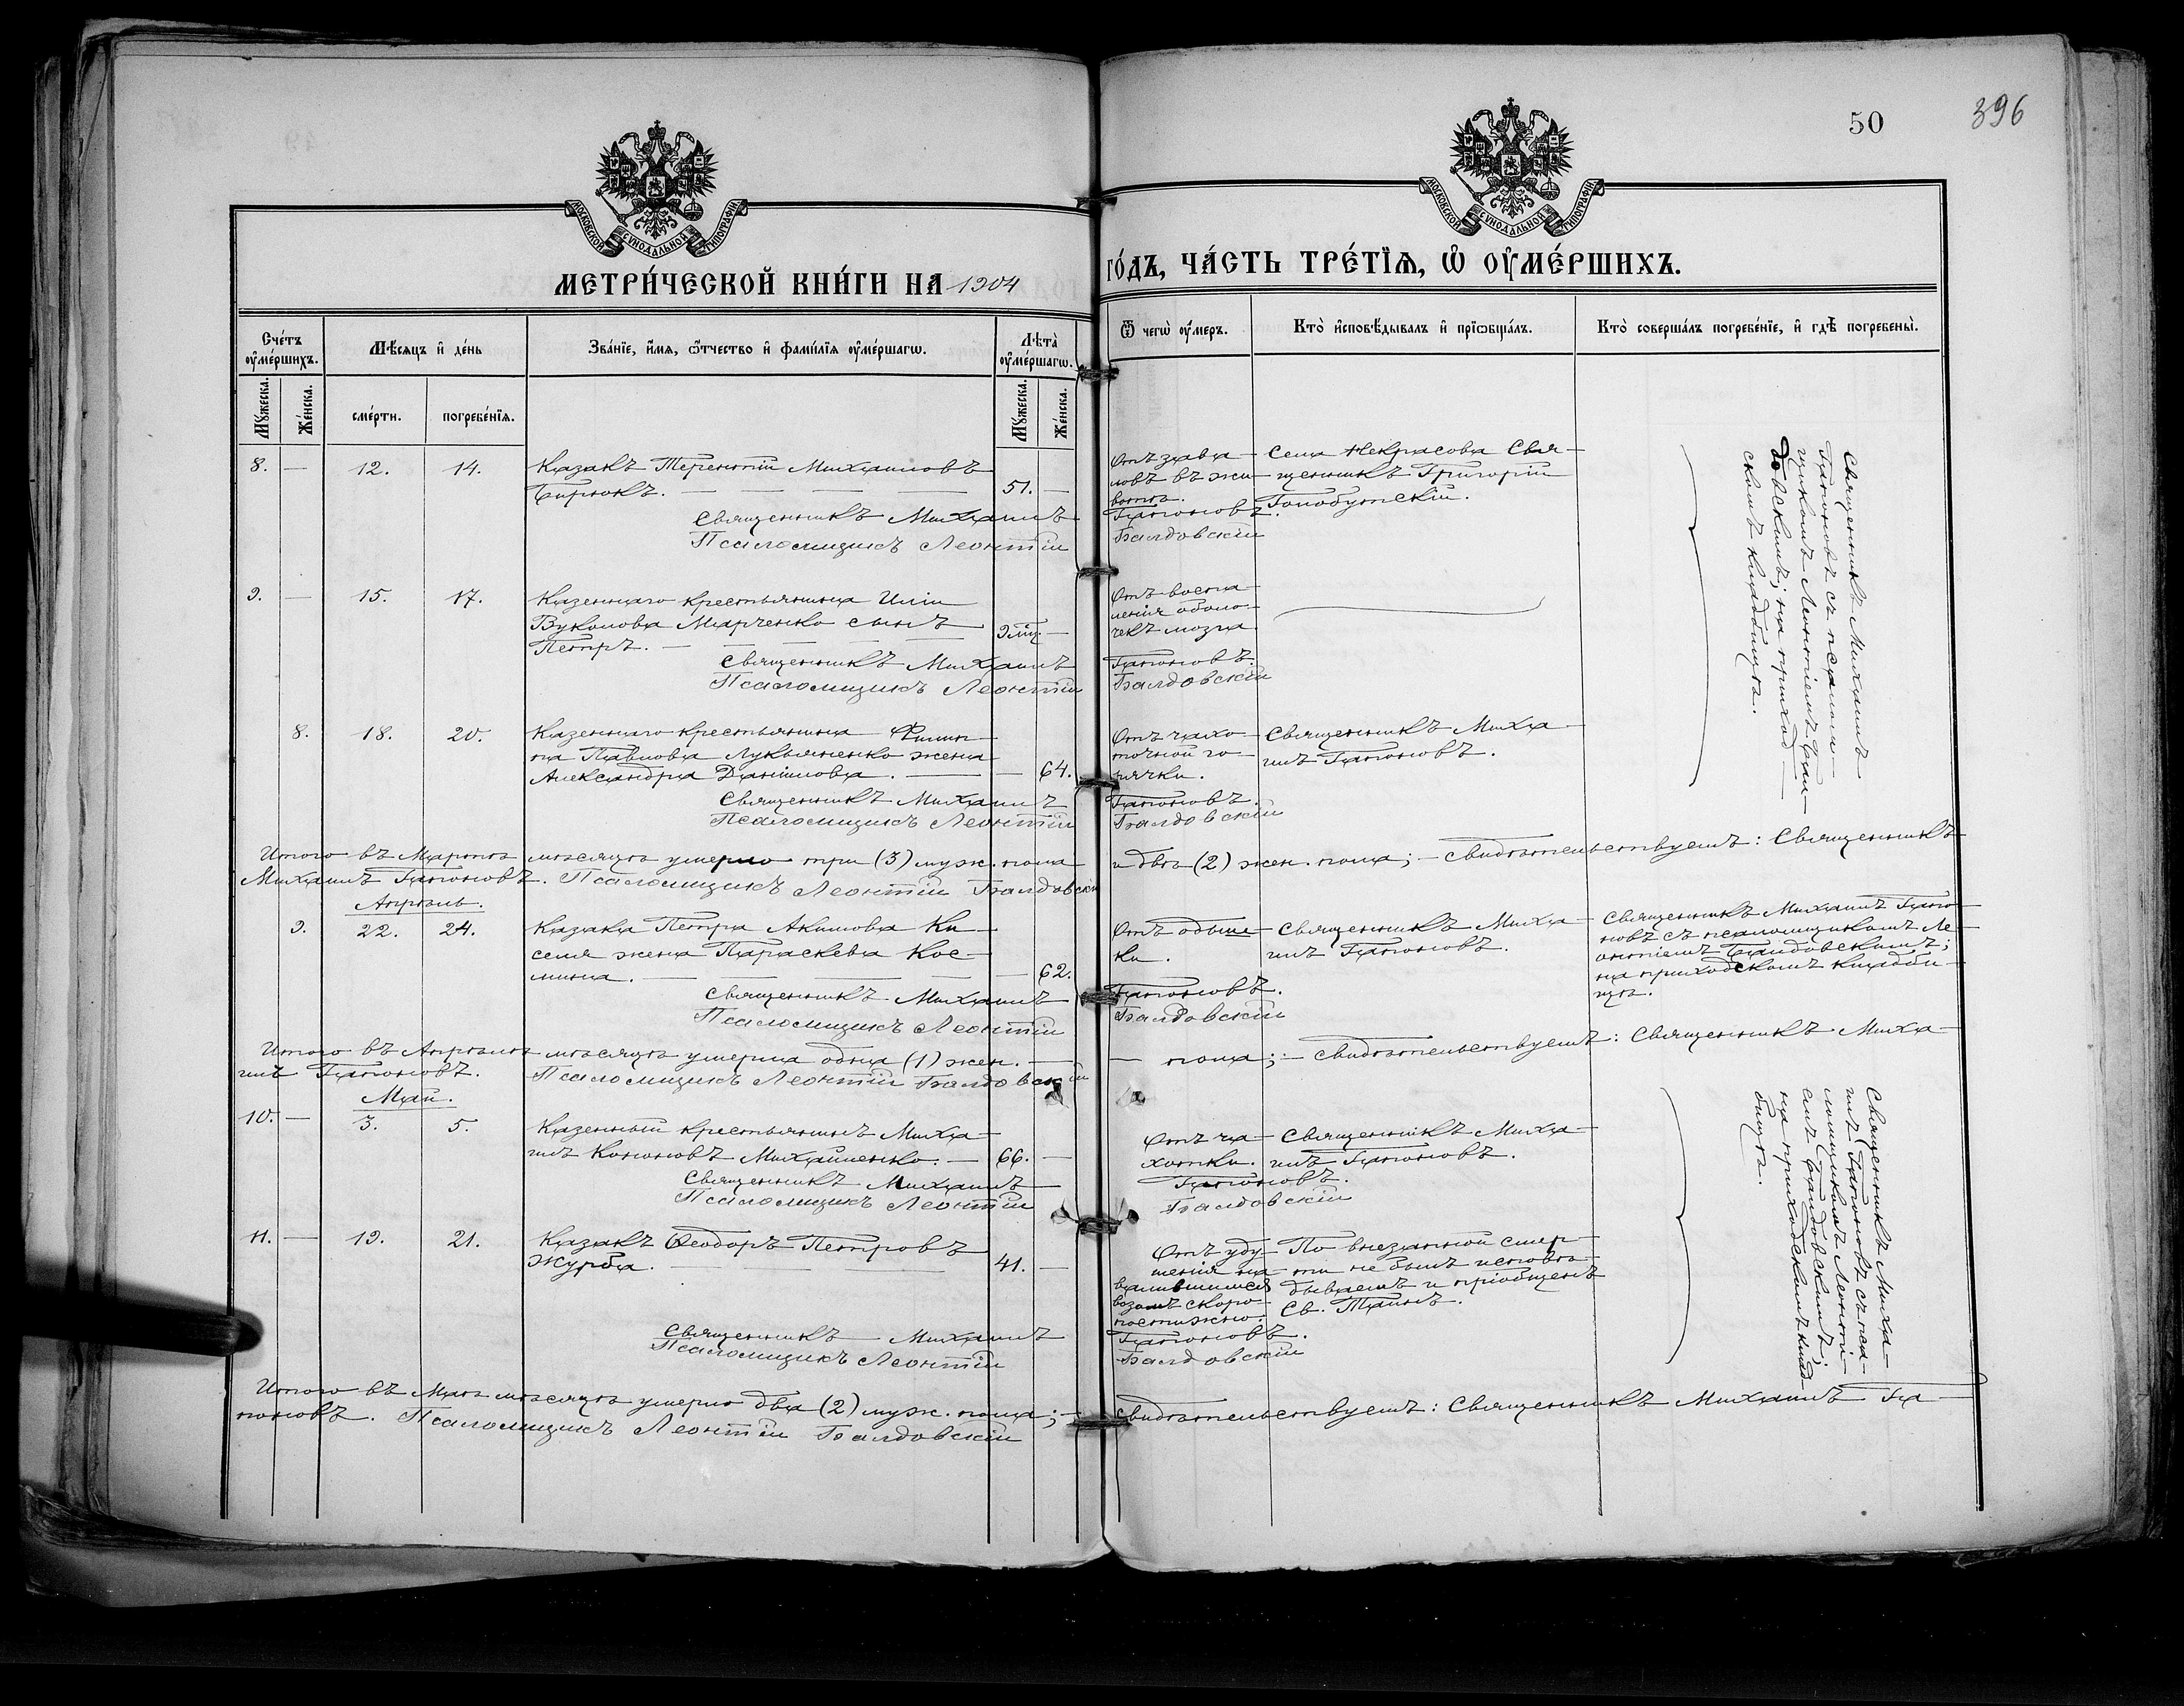 50
396
МОСКОВСКОЙ СѴНОДАЛЬНОЙ ТИПОГРАФІИ
МОСКОВСКОЙ СѴНОДАЛЬНОЙ ТИПОГРАФІИ
МЕТРИ́ЧЕСКОЙ КНИ́ГИ НА 1904
ГО́ДЪ, ЧА́СТЬ ТРЕ́ТІѦ, Ѡ ОУ҆МЕ́РШИХЪ.
Сче́тъ оу҆ме́ршихъ.
Мѣ́сяцъ и҆ де́нь
Зва́нїе, и҆́мѧ, ѻ҆́тчество и҆ фами́лїѧ оу҆ме́ршагѡ.
Лѣ́та оу҆ме́ршагѡ.
Ѿ чегѡ̀ оу҆́меръ.
Кто̀ и҆сповѣ́дывалъ и҆ прїѡбща́лъ.
Кто̀ соверша́лъ погребе́нїе, и҆ гдѣ̀ погребены̀.
Мꙋ́жеска.
Же́нска.
сме́рти.
погребе́нїѧ.
Мꙋ́жеска.
Же́нска.
8. — 12. 14.
Казакъ Терентій Михаиловъ
Бирюкъ. — — — — 51. —
Священникъ Михаилъ
Псаломщикъ Леонтій
Отъ зава-
ловъ въ жи-
вотѣ.
Гапоновъ.
Балдовскій
Села Некрасова Свя-
щенникъ Григорій
Голобутскій.
Священникъ Михаилъ
Гапоновъ съ псалом-
щикомъ Леонтіемъ Бал-
довскимъ; на приход-
скомъ кладбищѣ.
9. — 15. 17.
Казеннаго крестьянина Иліи
Вуколова Марченко сынъ
Петръ. — — 9 мѣц. —
Священникъ Михаилъ
Псаломщикъ Леонтій
Отъ воспа-
ленія оболо-
чекъ мозга.
Гапоновъ.
Балдовскій
8. 18. 20.
Казеннаго крестьянина Филип-
па Павлова Лукьяненко жена
Александра Даніилова. — — 64.
Священникъ Михаилъ
Псаломщикъ Леонтій
Отъ чахо-
точной го-
рячки.
Гапоновъ.
Балдовскій
Священникъ Миха-
илъ Гапоновъ.
Итого въ Мартѣ мѣсяцѣ умерло три (3) муж. пола и двѣ (2) жен. пола; — свидѣтельствуемъ: Священникъ
Михаилъ Гапоновъ. Псаломщикъ Леонтій Балдовскій
Апрѣль.
9. 22. 24.
Казака Петра Акимова Ки-
селя жена Параскева Кос-
мина. — — — — 62.
Священникъ Михаилъ
Псаломщикъ Леонтій
Отъ одыш-
ки.
Гапоновъ.
Балдовскій
Священникъ Миха-
илъ Гапоновъ.
Священникъ Михаилъ Гапо-
новъ съ псаломщикомъ Ле-
онтіемъ Балдовскимъ;
на приходскомъ кладби-
щѣ.
Итого въ Апрѣлѣ мѣсяцѣ умерла одна (1) жен. — — пола; — свидѣтельствуемъ: Священникъ Миха-
илъ Гапоновъ. Псаломщикъ Леонтій Балдовскій
Май.
10. — 3. 5.
Казенный крестьянинъ Миха-
илъ Кононовъ Михайленко. — 66. —
Священникъ Михаилъ
Псаломщикъ Леонтій
Отъ ча-
хотки.
Гапоновъ.
Балдовскій
Священникъ Миха-
илъ Гапоновъ.
Священникъ Миха-
илъ Гапоновъ съ пса-
ломщикомъ Леонті-
емъ Балдовскимъ;
на приходскомъ клад-
бищѣ.
11. — 19. 21.
Казакъ Ѳеодоръ Петровъ
Журба. — — — 41. —
Священникъ Михаилъ
Псаломщикъ Леонтій
Отъ уду-
шенія на-
валившимся
возомъ скоро-
постижно.
Гапоновъ.
Балдовскій
По внезапной смер-
ти не былъ исповѣ-
дываемъ и пріобщенъ
Св. Таинъ.
Итого въ Маѣ мѣсяцѣ умерло два (2) муж. пола; — свидѣтельствуемъ: Священникъ Михаилъ Га-
поновъ. Псаломщикъ Леонтій Балдовскій